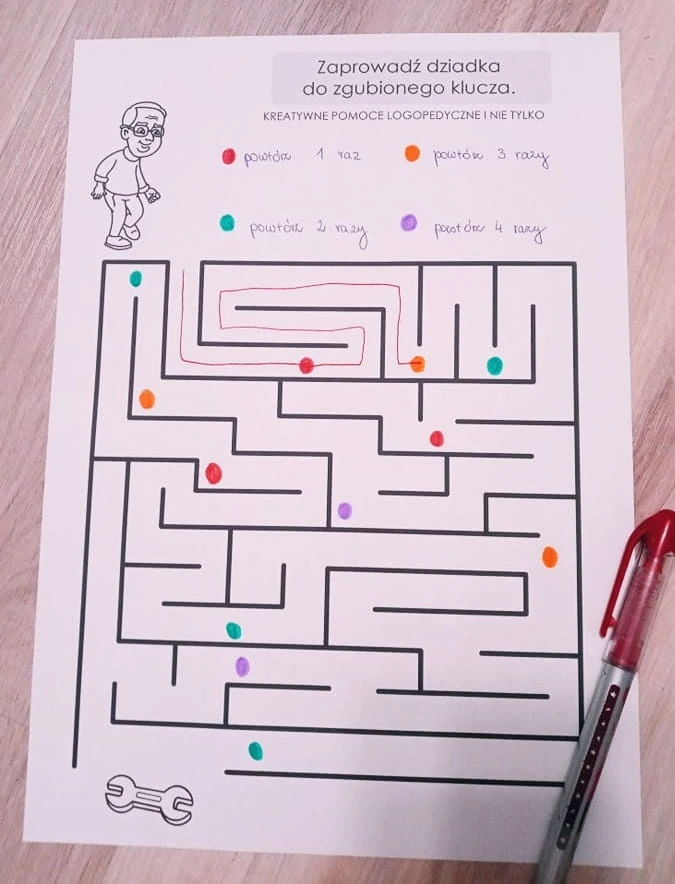 Zaprowadź dziadka
do zgubionego klucza.
KREATYWNE POMOCE LOGOPEDYCZNE I NIE TYLKO
powtórz 1 raz
powtórz 3 razy
powtórz 2 razy
powtórz 4 razy